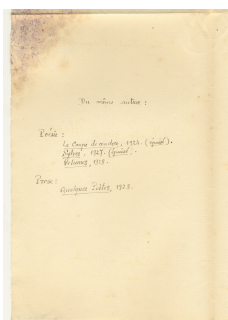 Du même auteur :
Poésie :
Le Coupe de cendre, 1926. (épuisé).
1927. (épuisé).
Volumes, 1928.
Prose :
Quelques Poètes, 1928.